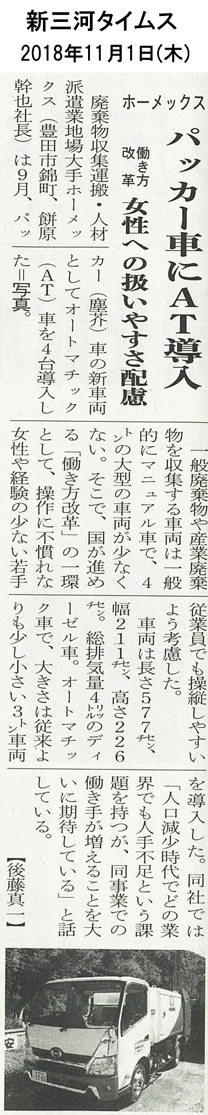 新三河タイムス
2018年11月1日(木)
ホーメックス
パッカー車にAT導入
働き方
改革
女性への扱いやすさ配慮
廃棄物収集運搬・人材
派遣業地場大手ホーメッ
クス（豊田市錦町、餅原
幹也社長）は9月、パッ
カー（塵芥）車の新車両
としてオートマチック
（AT）車を4台導入し
た＝写真。
一般廃棄物や産業廃棄
物を収集する車両は一般
的にマニュアル車で、4
トンの大型の車両が少なく
ない。そこで、国が進め
る「働き方改革」の一環
として、操作に不慣れな
女性や経験の少ない若手
従業員でも操縦しやすい
よう考慮した。
車両は長さ577センチ、
幅211センチ、高さ226
センチ。総排気量4リットルのディ
ーゼル車。オートマチッ
ク車で、大きさは従来よ
りも少し小さい3トン車両
を導入した。同社では
「人口減少時代でどの業
界でも人手不足という課
題を持つが、同事業での
働き手が増えることを大
いに期待している」と話
している。
【後藤真一】